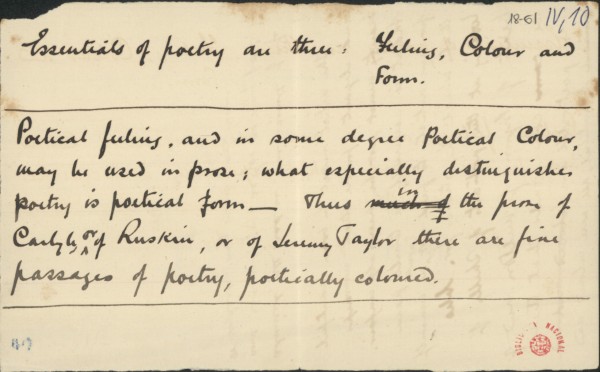 18-61 IV, 10
Essentials of poetry are three: Feeling, Colour and
Form.
Poetical feeling, and in some degree Poetical Colour,
may be used in prose; what especially distinguishes
poetry is poetical form — Thus much of in the prose of
Carlyle, or of Ruskin, or of Jeremy Taylor there are fine
passages of poetry, poetically coloured.